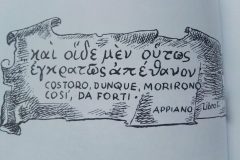 καὶ οἵδε μὲν οὕτως
ἐγκρατῶς ἀπέθανον.
COSTORO, DUNQUE, MORIRONO
COSÌ, DA FORTI.
APPIANO Libro I.